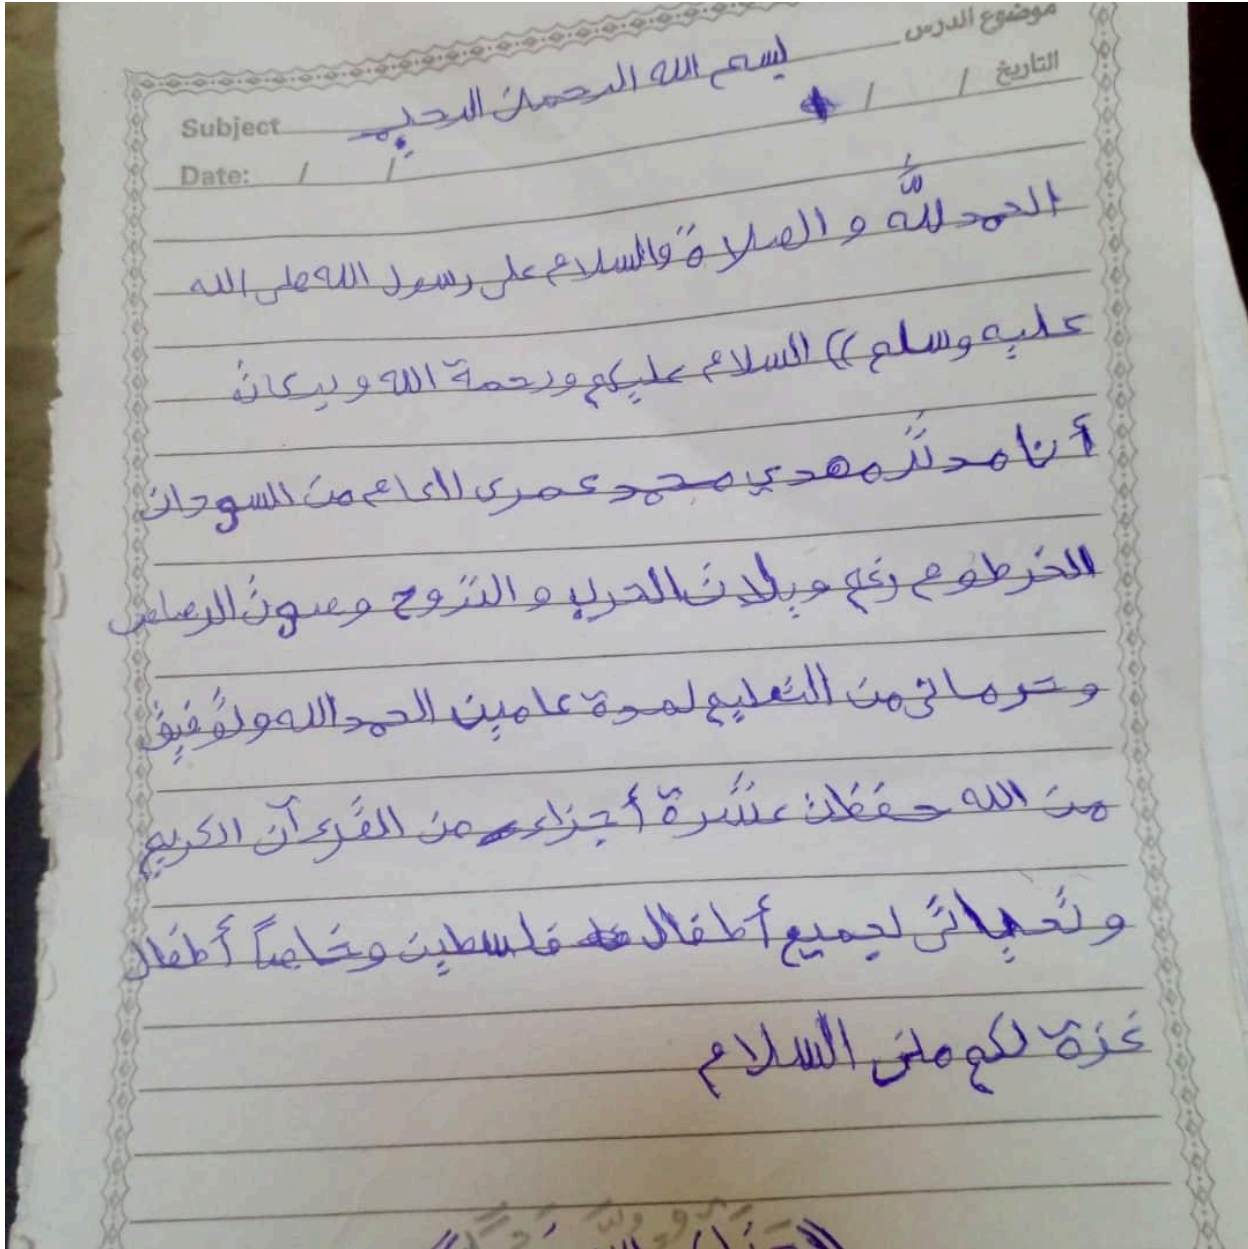 موضوع الدرس
بسم الله الرحمن الرحيم
Subject
التاريخ / /
Date: / /
الحمد لله و الصلاة والسلام على رسول الله صلى الله
عليه وسلم )) السلام عليكم ورحمة الله وبركاتهُ
أنا مدثر مهدي محمد عمرى 11 عام من السودان
الخرطوم رغم ويلات الحرب و النزوح وصوت الرصاص
وحرمانى من التعليم لمدة عامين الحمد الله وتوفيق
من الله حفظت عشرة أجزاء من القرءآن الكريم
وتحياتى لجميع أطفال فلسطين وخاصاً أطفال
غزة لكم منى السلام